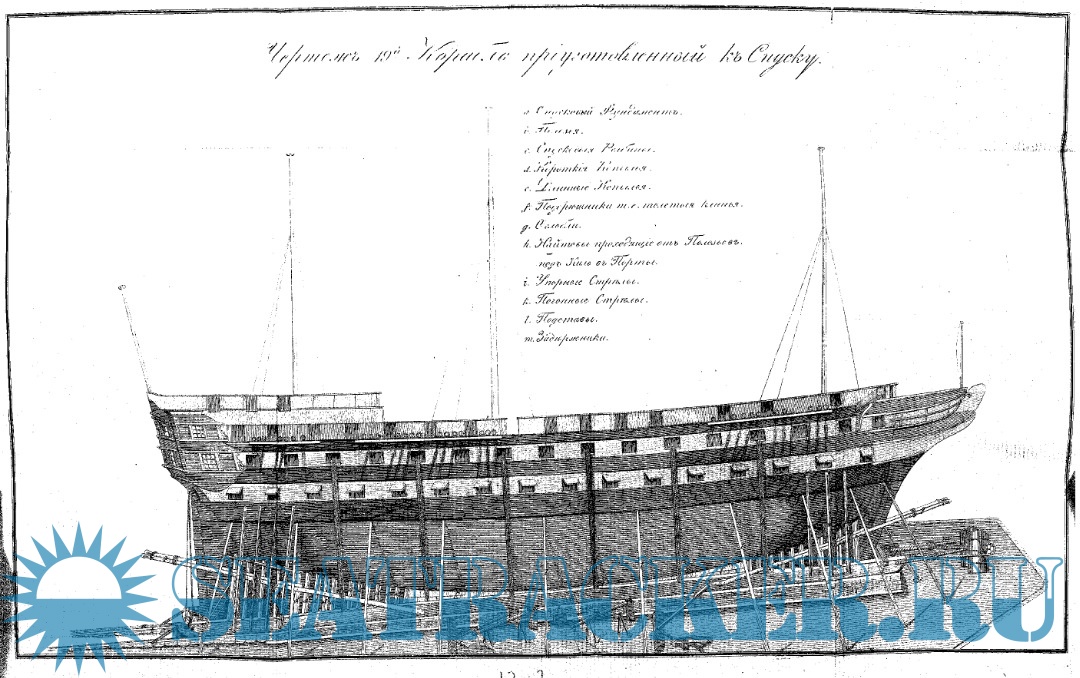 Чертежъ 19й Корабль пріуготовленный къ Спуску.
a. Спусковый Фундаментъ.
c. Спусковыя Рыбины.
d. Короткія Копылья.
e. Длинные Копылья.
f. Подбрюшники т.е. толстыя клинья.
g.
h. Найтовы проходящіе отъ Полозьевъ.
подъ Киль въ Порты.
i. Упорные Стрѣлы.
k. Погонные Стрѣлы.
l. Подставы.
m. Задержники.
SEATRACKER.RU